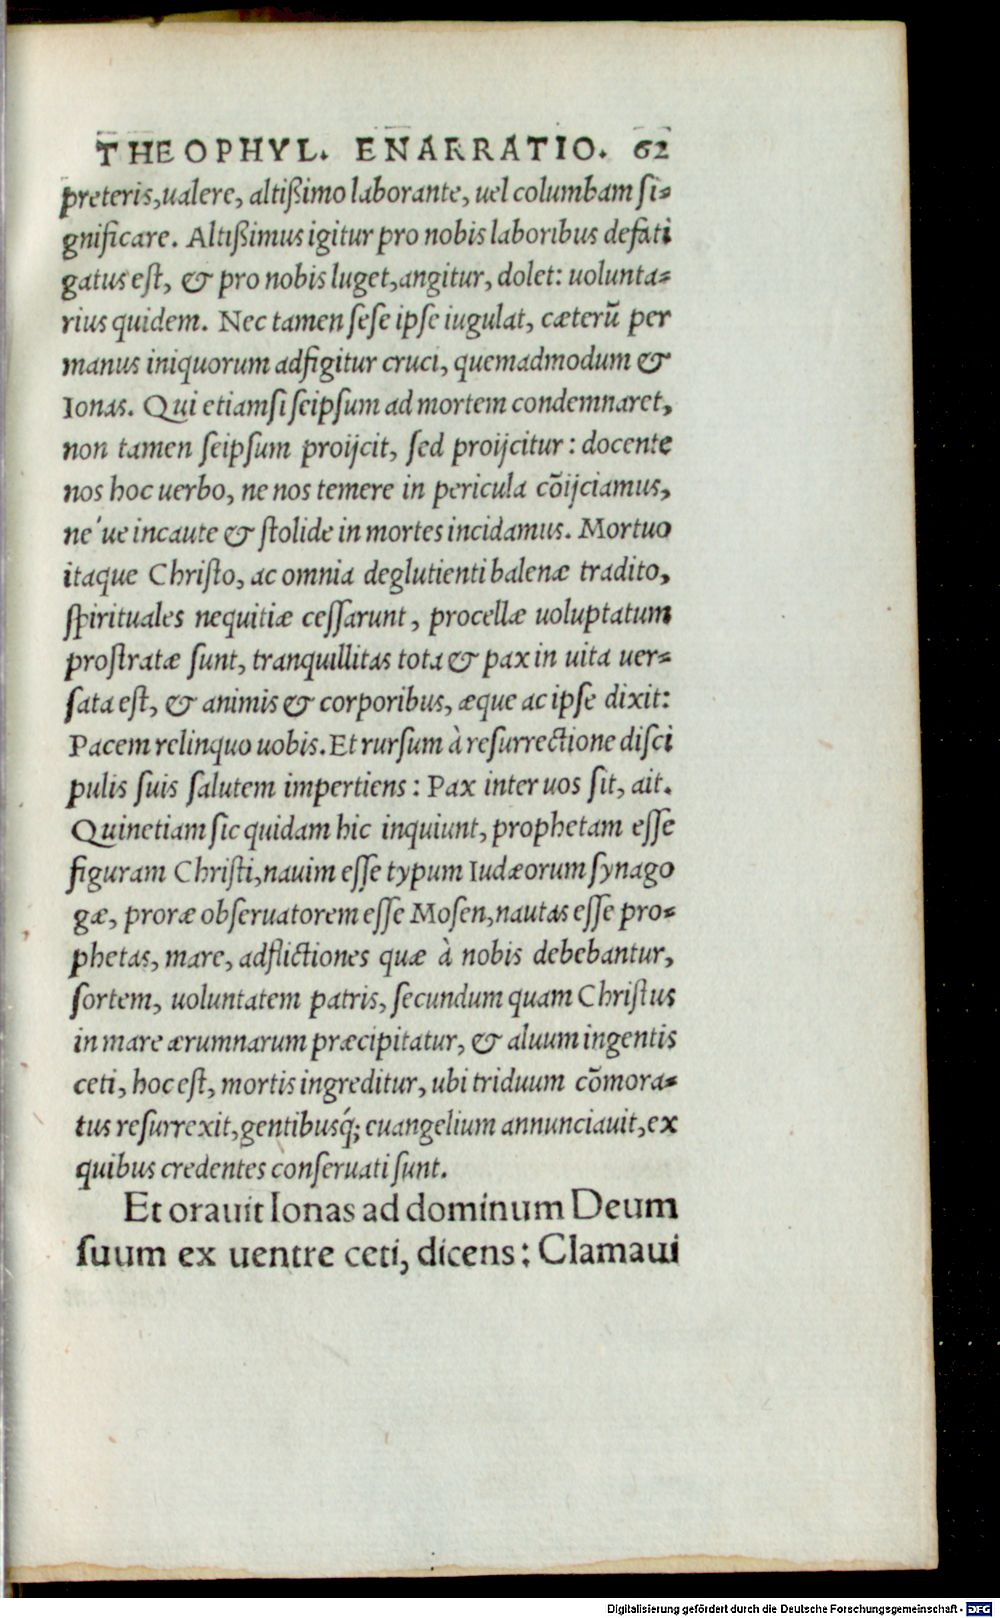 THEOPHYL. ENARRATIO. 62
preteris,ualere, altißimo laborante, uel columbam si-
gnificare. Altißimus igitur pro nobis laboribus defati
gatus est, & pro nobis luget,angitur, dolet: uolunta-
rius quidem. Nec tamen sese ipse iugulat, cæterũ per
manus iniquorum adfigitur cruci, quemadmodum &
Ionas. Qui etiamsi seipsum ad mortem condemnaret,
non tamen seipsum proijcit, sed proijcitur: docente
nos hoc uerbo, ne nos temere in pericula cõijciamus,
ne´ue incaute & stolide in mortes incidamus. Mortuo
itaque Christo, ac omnia deglutienti balenæ tradito,
spirituales nequitiæ cessarunt, procellæ uoluptatum
prostratæ sunt, tranquillitas tota & pax in uita uer-
sata est, & animis & corporibus, æque ac ipse dixit:
Pacem relinquo uobis. Et rursum à resurrectione disci
pulis suis salutem impertiens: Pax inter uos sit, ait.
Quinetiam sic quidam hic inquiunt, prophetam esse
figuram Christi,nauim esse typum Iudæorum synago
gæ, proræ obseruatorem esse Mosen,nautas esse pro-
phetas, mare, adflictiones quæ à nobis debebantur,
sortem, uoluntatem patris, secundum quam Christus
in mare ærumnarum præcipitatur, & aluum ingentis
ceti, hoc est, mortis ingreditur, ubi triduum cõmora-
tus resurrexit,gentibusq́; euangelium annunciauit,ex
quibus credentes conseruati sunt.
Et orauit Ionas ad dominum Deum
suum ex uentre ceti, dicens: Clamaui
Digitalisierung gefördert durch die Deutsche Forschungsgemeinschaft - DFG